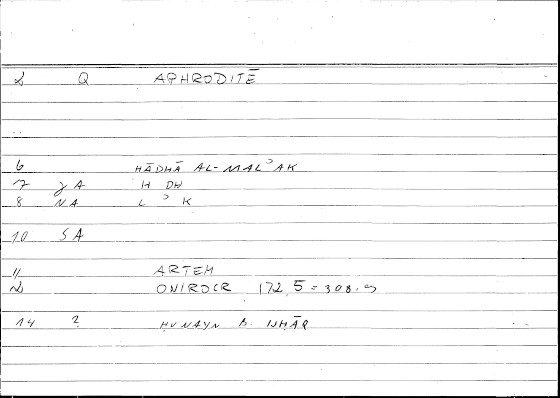 2 Q APHRODITĒ
6 HĀDHĀ AL-MALʾAK
7 γ A H DH
8 NA L ʾ K
10 SA
11 ARTEM
2 ONIROCR 172,5 = 308.
14 ? ḤUNAYN B. ISḤĀQ